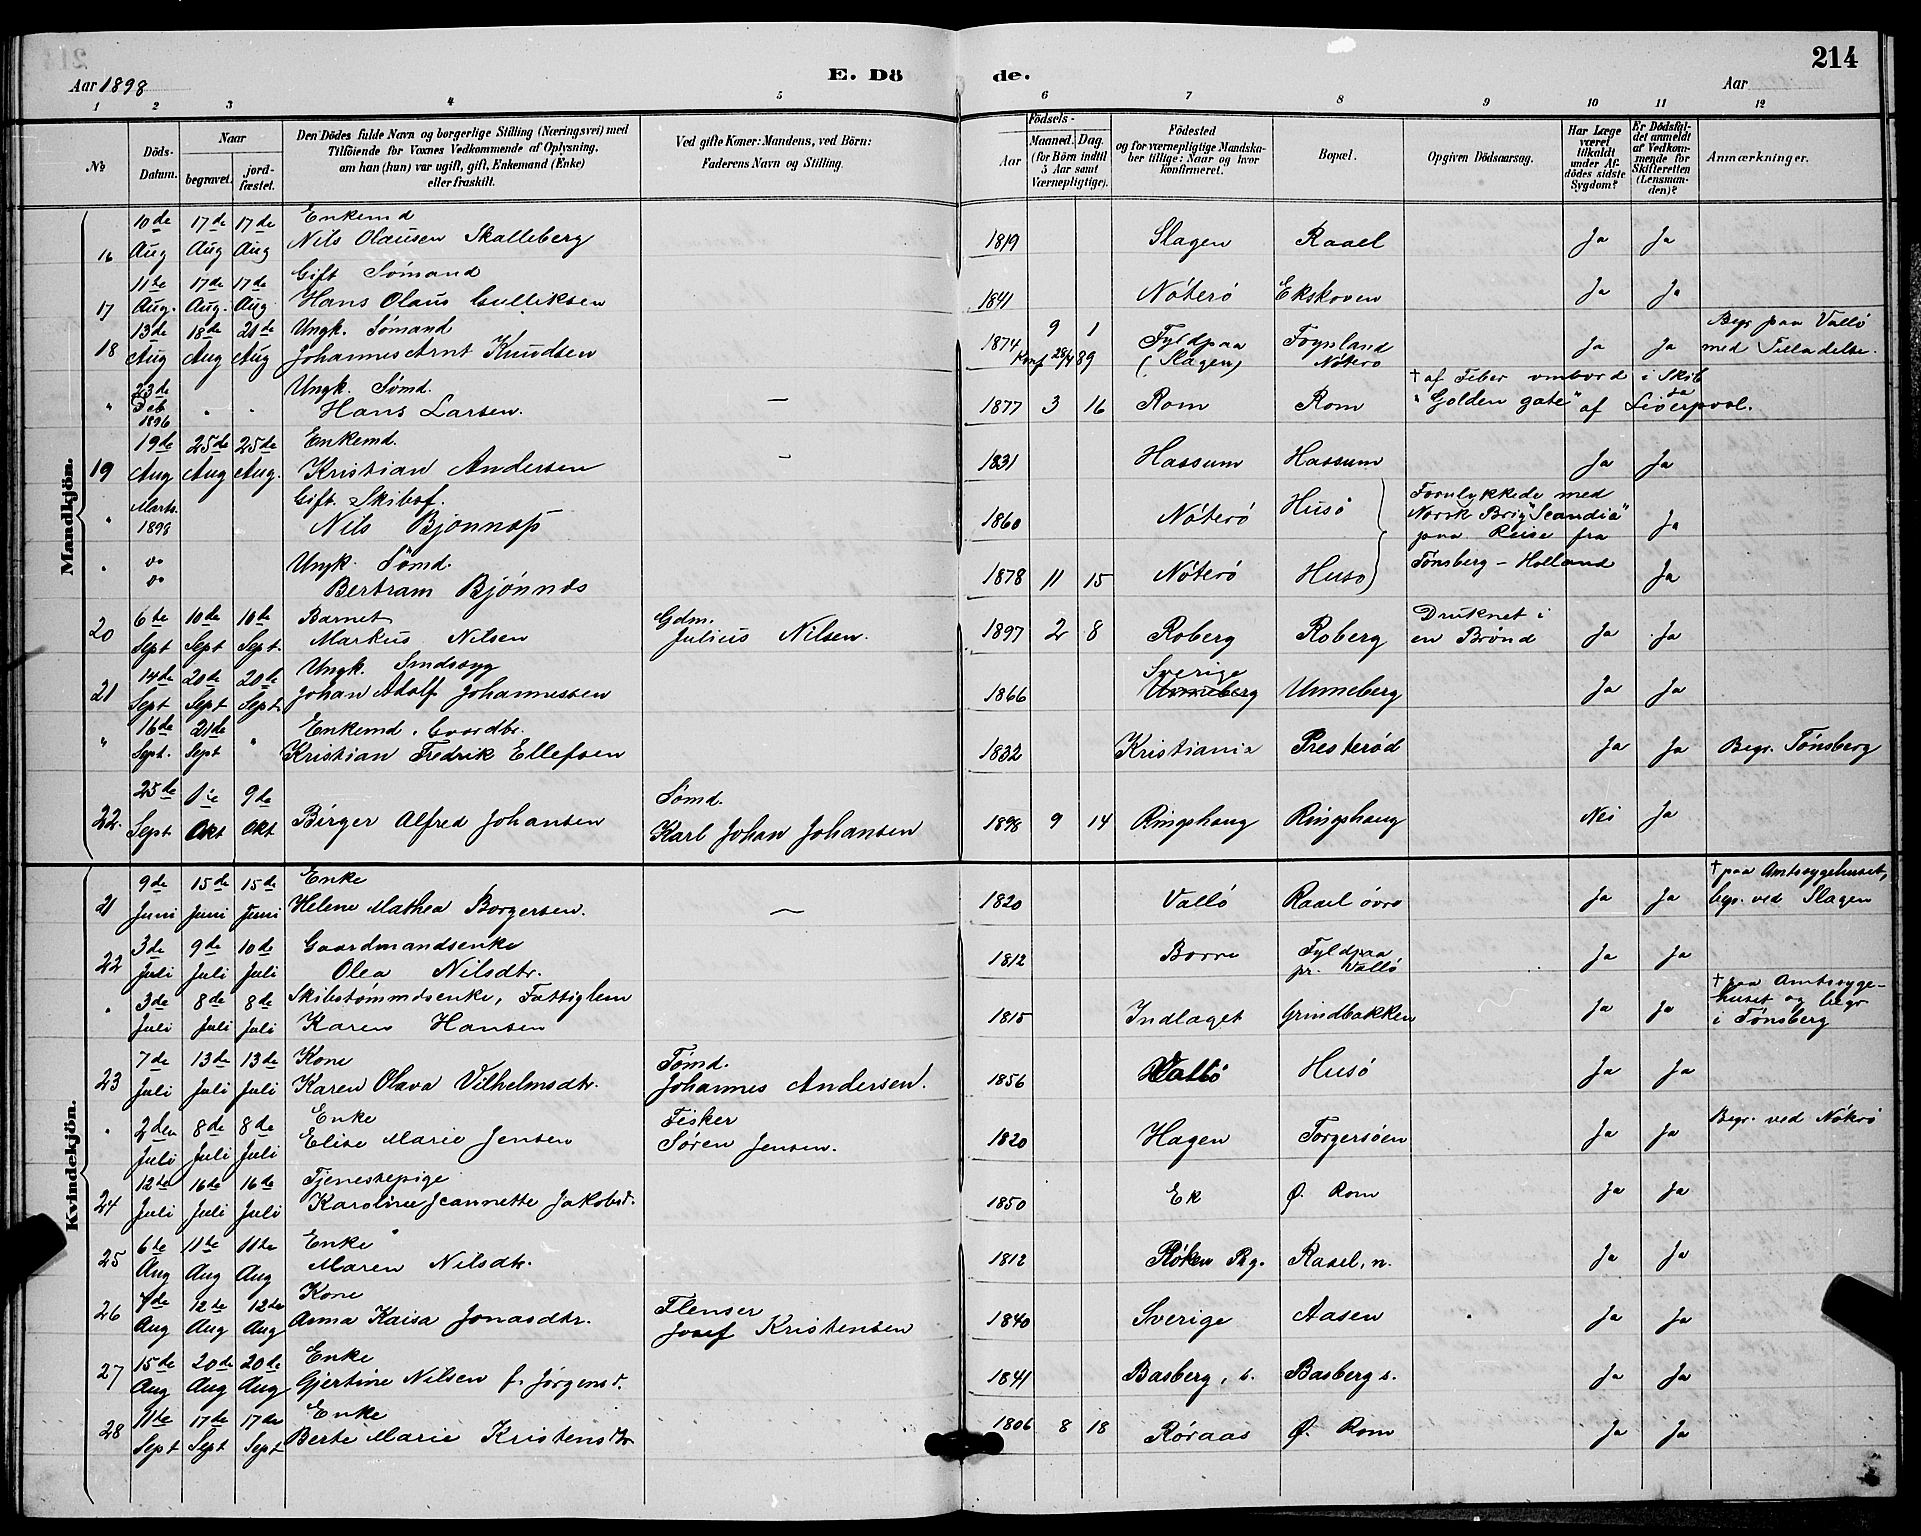 214
Aar 1898 E. Dö de. Aar
1 2 3 4 5 6 7 8 9 10 11 12
№ Döds-Datum. Naar begravet. jordfæstet. Den Dödes fulde Navn og borgerlige Stilling (Næringsvei) med Tilföiende for Voxnes Vedkommende af Oplysning, om han (hun) var ugift, gift, Enkemand (Enke) eller fraskilt. Ved gifte Koner: Mandens, ved Börn: Faderens Navn og Stilling. Födsels- Aar Maaned. Dag. (for Börn indtil 5 Aar samt Værnepligtige). Födested og for værnepligtige Mandskaber tillige: Naar og hvor konfirmeret. Bopæl. Opgiven Dödsaarsag. Har Læge været tilkaldt under Afdödes sidste Sygdom? Er Dödsfaldet anmeldt af Vedkommende for Skifteretten (Lensmanden)? Anmærkninger.
Mandkjön.
16 10de Aug 17de Aug 17de Aug Enkemd Nils Olausen Skalleberg 1819 Slagen Raael Ja Ja
17 11te Aug. 17de Aug. 17de Aug Gift Sømand Hans Olaus Gulliksen 1841 Nøterø Ekskoven Ja Ja
18 13de Aug 18de Aug 21de Aug Ungk. Sømand Johannes Arnt Knudsen 1874 9 1 Konf 28/4 89 Fyldpaa (Slagen) Foynland Nøterø Ja Ja Begr paa Vallø med Tilladelse.
" 23de Feb 1896 " " Ungk. Sømd. Hans Larsen. — 1877 3 16 Rom Rom † af Feber ombord i Skib "Golden gate" af Liverpool. Ja
19 19de Aug 25de Aug 25de Aug. Enkemd. Kristian Andersen - 1831 Hassum Hassum Ja Ja
" Marts. 1898 Gift Skibsf. Nils Bjønnes 1860 Nøterø Husø Forulykkede med Norsk Brig "Scandia" paa Reise fra Tønsberg - Holland Ja
" do do Ungk. Sømd. Bertram Bjønnes 1878 11 15 Nøterø Husø Ja
20 6te Sept 10de Sept 10de Sept. Barnet Markus Nilsen Gdm. Julius Nilsen. 1897 2 8 Roberg Roberg Druknet i en Brønd Ja Ja
21 14de Sept 20de Sept 20de Sept. Ungk. Sindssyg Johan Adolf Johannessen 1866 Sverige Unneberg Unneberg Ja Ja
" 16de Sept. 21de Sept " Enkemd. Gaardbr. Kristian Fredrik Ellefsen 1832 Kristiania Presterød Ja Ja Begr. Tønsberg
22. 25de Sept 1ste Okt 9de Okt Birger Alfred Johansen Sømd. Karl Johan Johansen 1898 9 14 Ringshaug Ringshaug Nei Ja
Kvindekjön.
21 9de Juni 15de Juni 15de Juni Enke Helene Mathea Borgersen. — 1820 Vallø Raael øvre Ja Ja † paa Amtssygehuset, begr. ved Slagen
22 3de Juli 9de Juli 10de Juli Gaardmandsenke Olea Nilsdtr. 1812 Borre Fyldpaa pr. Vallø Ja Ja
" 3de Juli 8de Juli 8de Juli Skibstømmdsenke, Fattiglem Karen Hansen 1815 Indlaget Grindbakken Ja Ja † paa Amtssygehuset og begr i Tønsberg
23 7de Juli 13de Juli 13de Juli Kone Karen Olava Vilhelmsdtr. Tømd. Johannes Andersen. 1856 Vallø Husø Ja Ja
" 2den Juli 8de Juli 8de Juli Enke Elise Marie Jensen Fisker Søren Jensen. 1820 Hagen Torgersøen Ja Ja Begr. ved Nøterø
24 12te Juli 16de Juli 16de Juli Tjenestepige Karoline Jeannette Jakobsd. 1850 Ek Ø. Rom Ja Ja
25 6te Aug 11te Aug 11te Aug Enke Maren Nilsdtr. 1812 Røken Pg. Raael, n. Ja Ja
26 7de Aug 12te Aug 12te Aug Kone Anna Kaisa Jonasdtr. Flenser Josef Kristensen 1840 Sverige Aasen Ja Ja
27 15de Aug 20de Aug 20de Aug Enke Gjertine Nilsen f. Jørgensd. 1841 Basberg, s. Basberg s. Ja Ja
28 11te Sept 17de Sept 17de Sept Enke Berte Marie Kristensdtr 1806 8 18 Røraas Ø. Rom Ja Ja